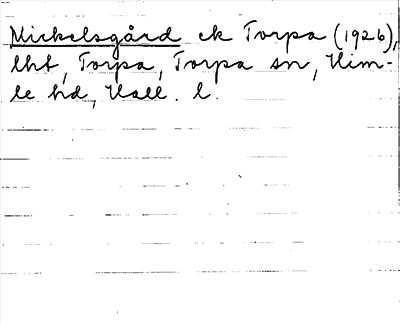 Mickelsgård ek Torpa (1926),
lht, Torpa, Torpa sn, Him-
le hd, Hall. l.